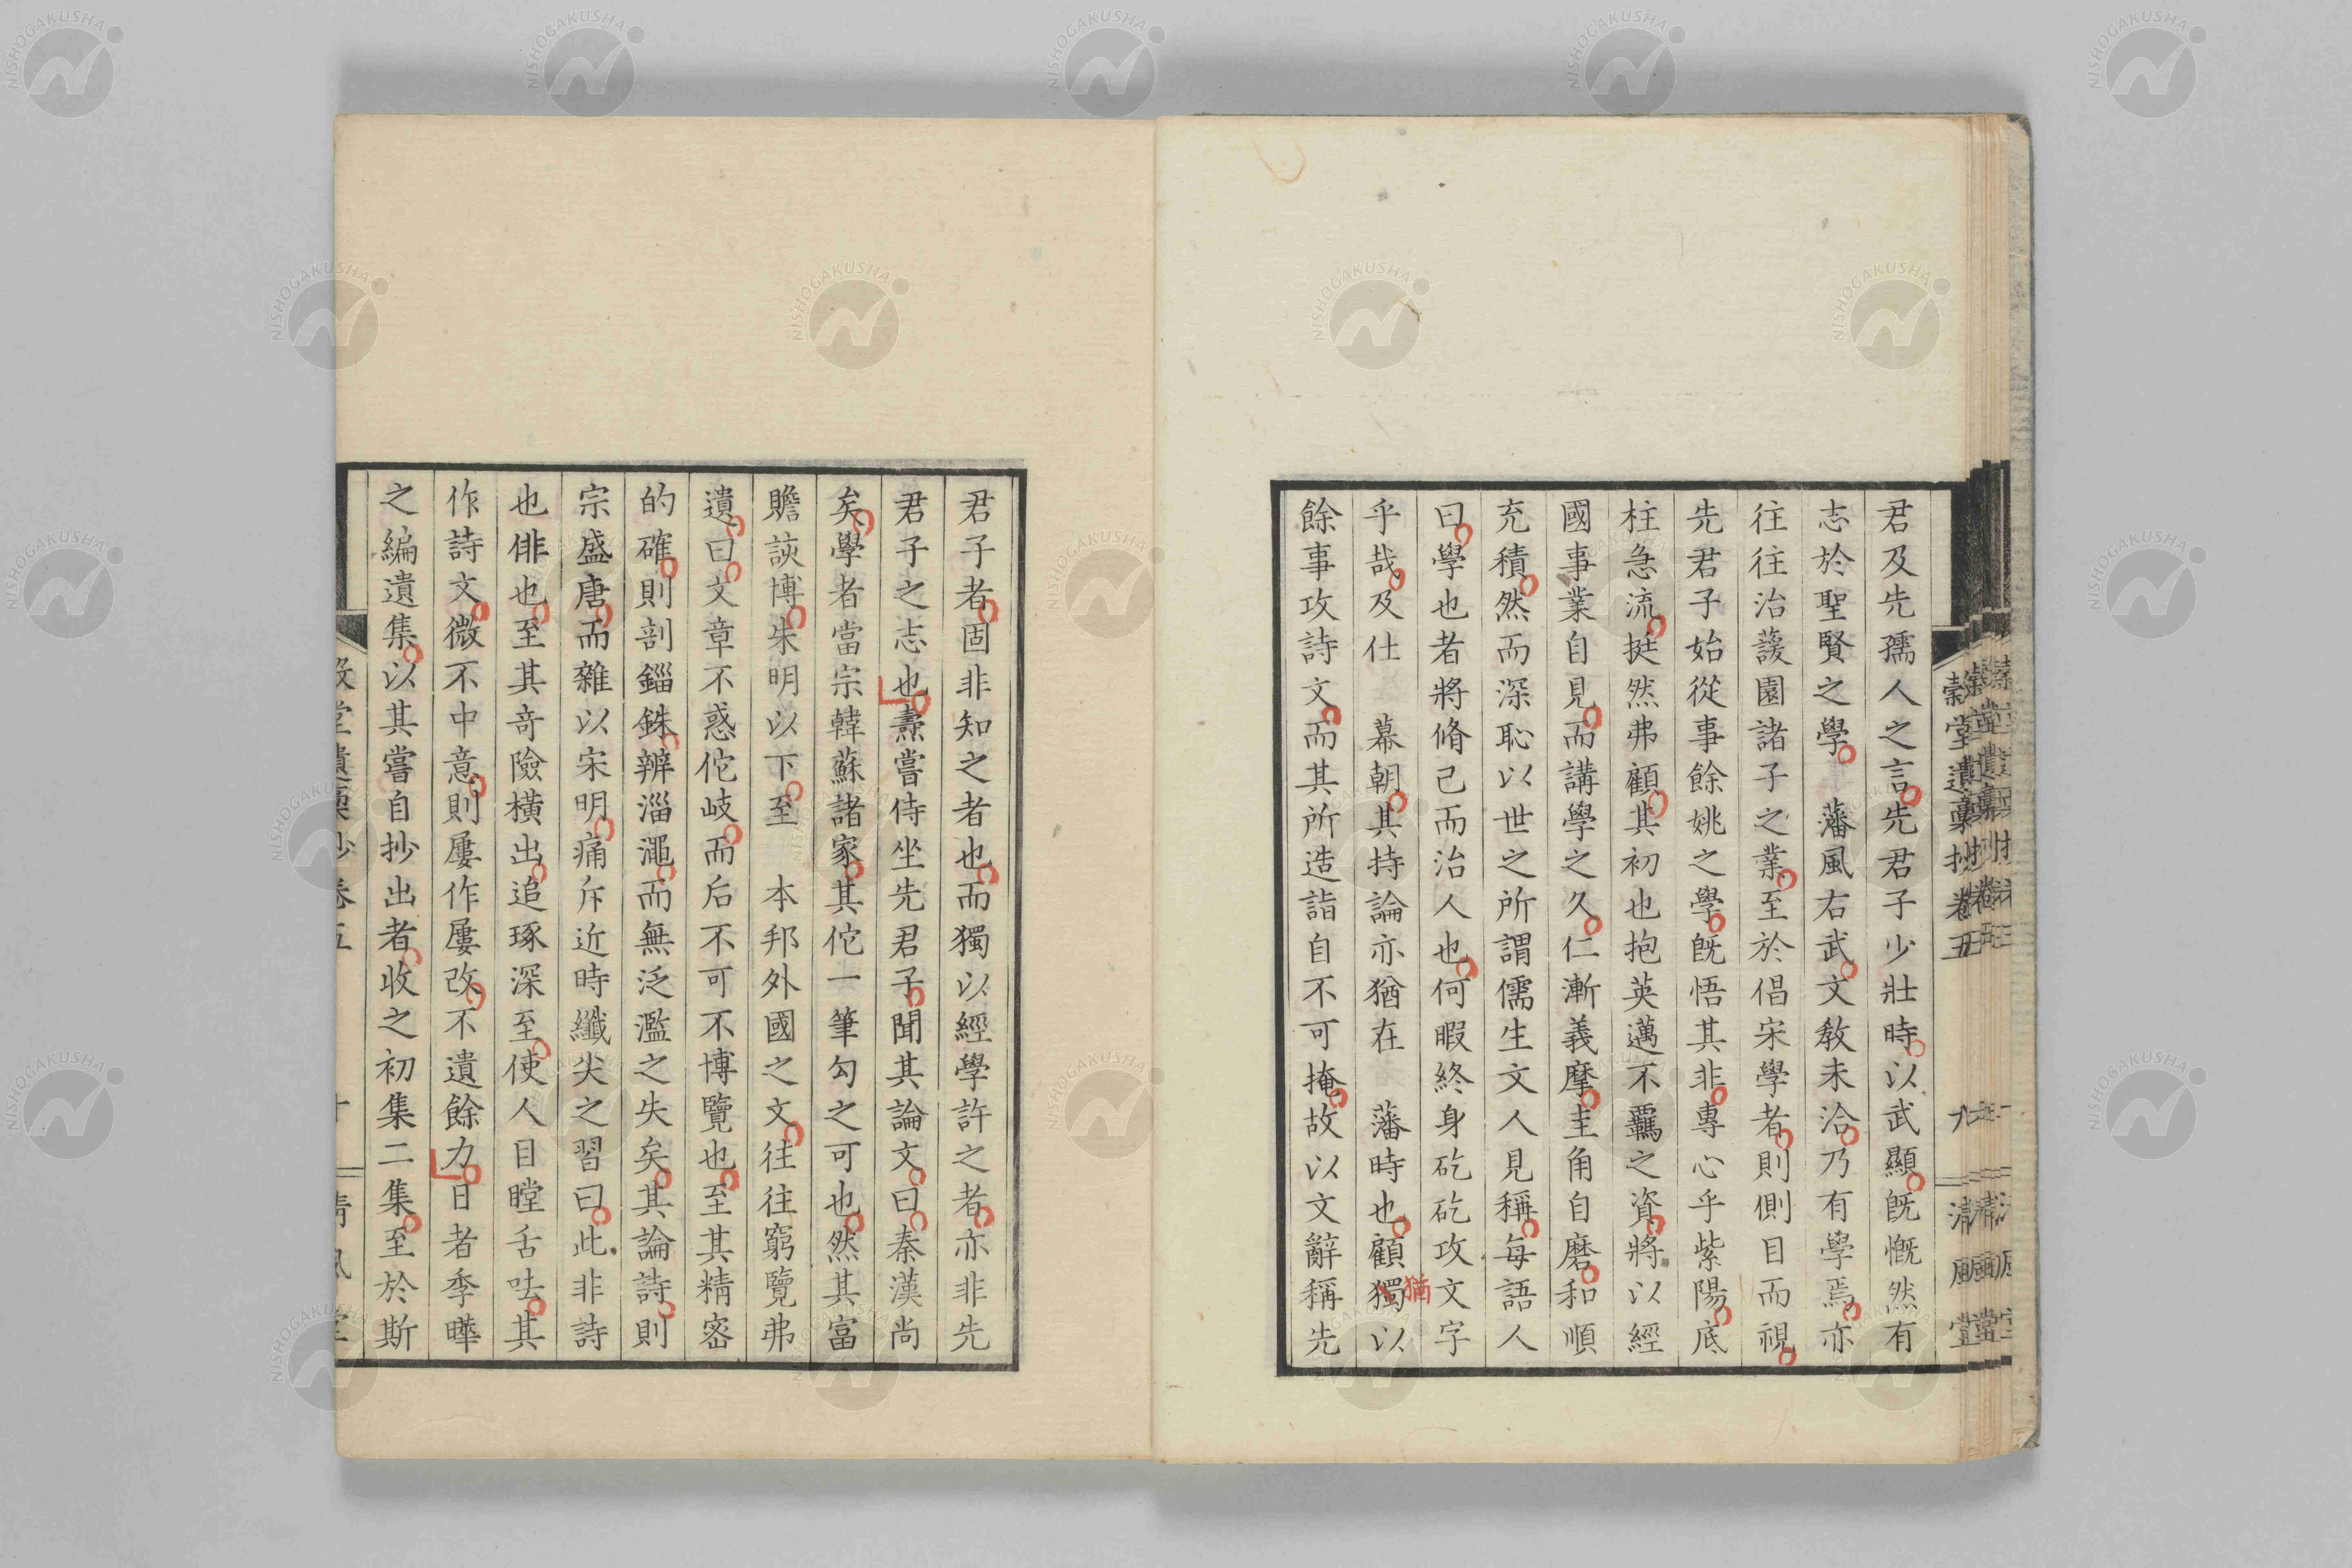 君及先孺人之言先君子少壯時以武顯旣慨然有
志於聖賢之學 藩風右武文敎未洽乃有學焉亦
往往治蘐園諸子之業至於倡宋學者則側目而視
先君子始從事餘姚之學旣悟其非專心乎紫陽底
柱急流挺然弗顧其初也抱英邁不羈之資將以經
國事業自見而講學之久仁漸義摩圭角自磨和順
充積然而深恥以世之所謂儒生文人見稱每語人
曰學也者將脩己而治人也何暇終身矻矻攻文字
乎哉及仕 幕朝其持論亦猶在 藩時也顧獨以
猶
餘事攻詩文而其所造詣自不可掩故以文辭稱先
穀堂遺稾抄卷五 九 淸風堂
君子者固非知之者也而獨以經學許之者亦非先
君子之志也燾嘗侍坐先君子聞其論文曰秦漢尚
矣學者當宗韓蘇諸家其佗一筆勾之可也然其富
贍談博朱明以下至 本邦外國之文往往窮覽弗
遺曰文章不惑佗岐而后不可不博覽也至其精密
的確則剖錙銖辨淄澠而無泛濫之失矣其論詩則
宗盛唐而雜以宋明痛斥近時纖尖之習曰此非詩
也俳也至其奇險橫出追琢深至使人目瞠舌呿其
作詩文微不中意則屢作屢改不遺餘力日者季曄
之編遺集以其嘗自抄出者收之初集二集至於斯